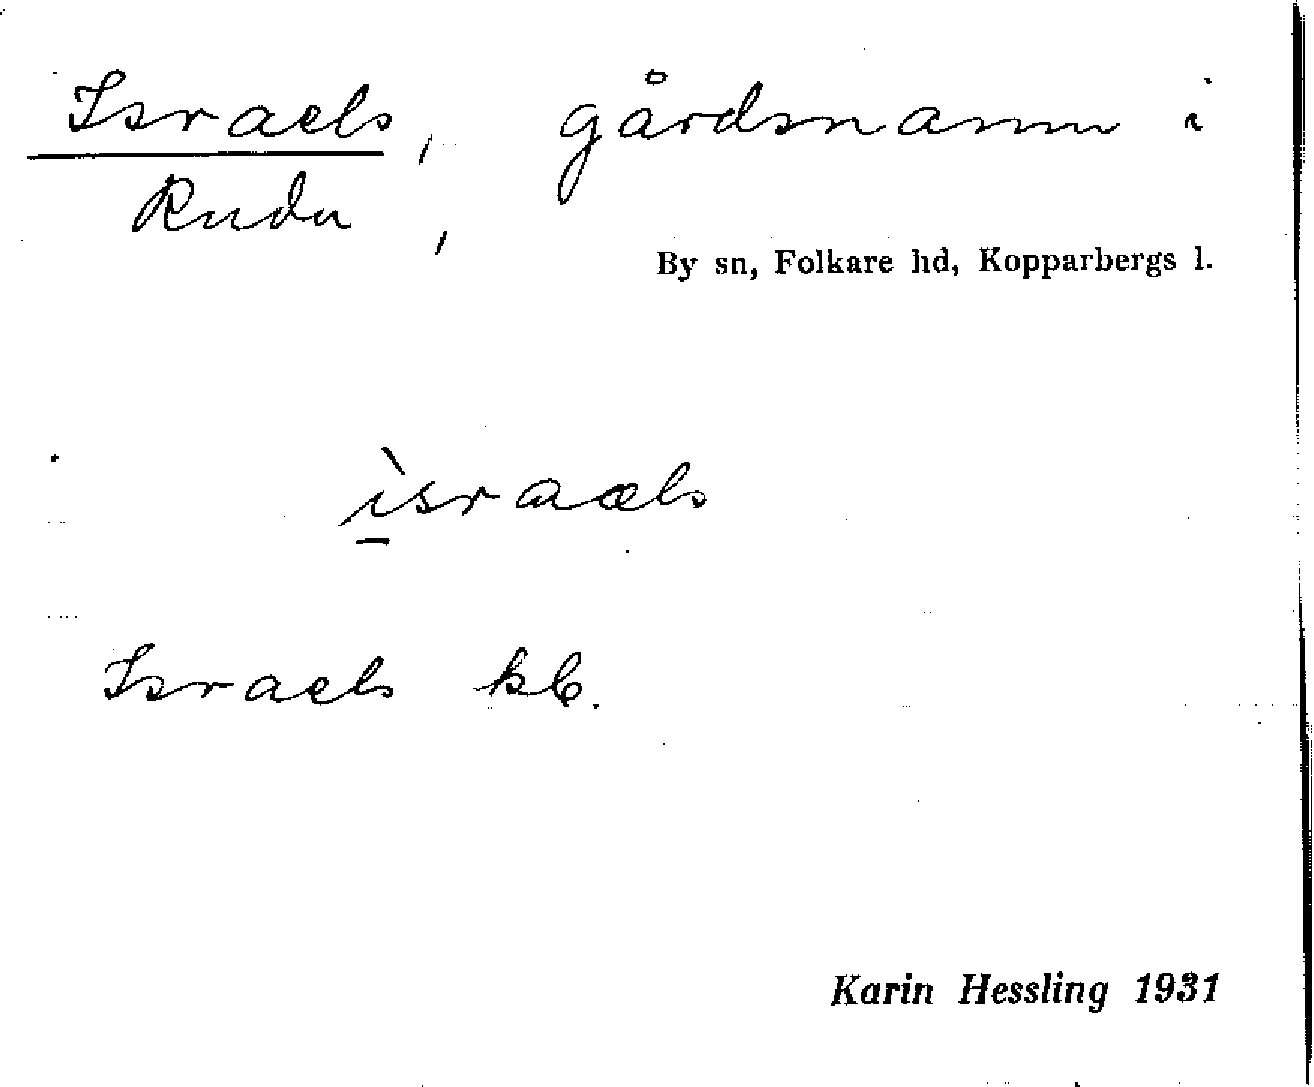 Israels, gårdsnamn i
Rudu,
By sn, Folkare hd, Kopparbergs l.
ìsraæls
Israels kb.
Karin Hessling 1931